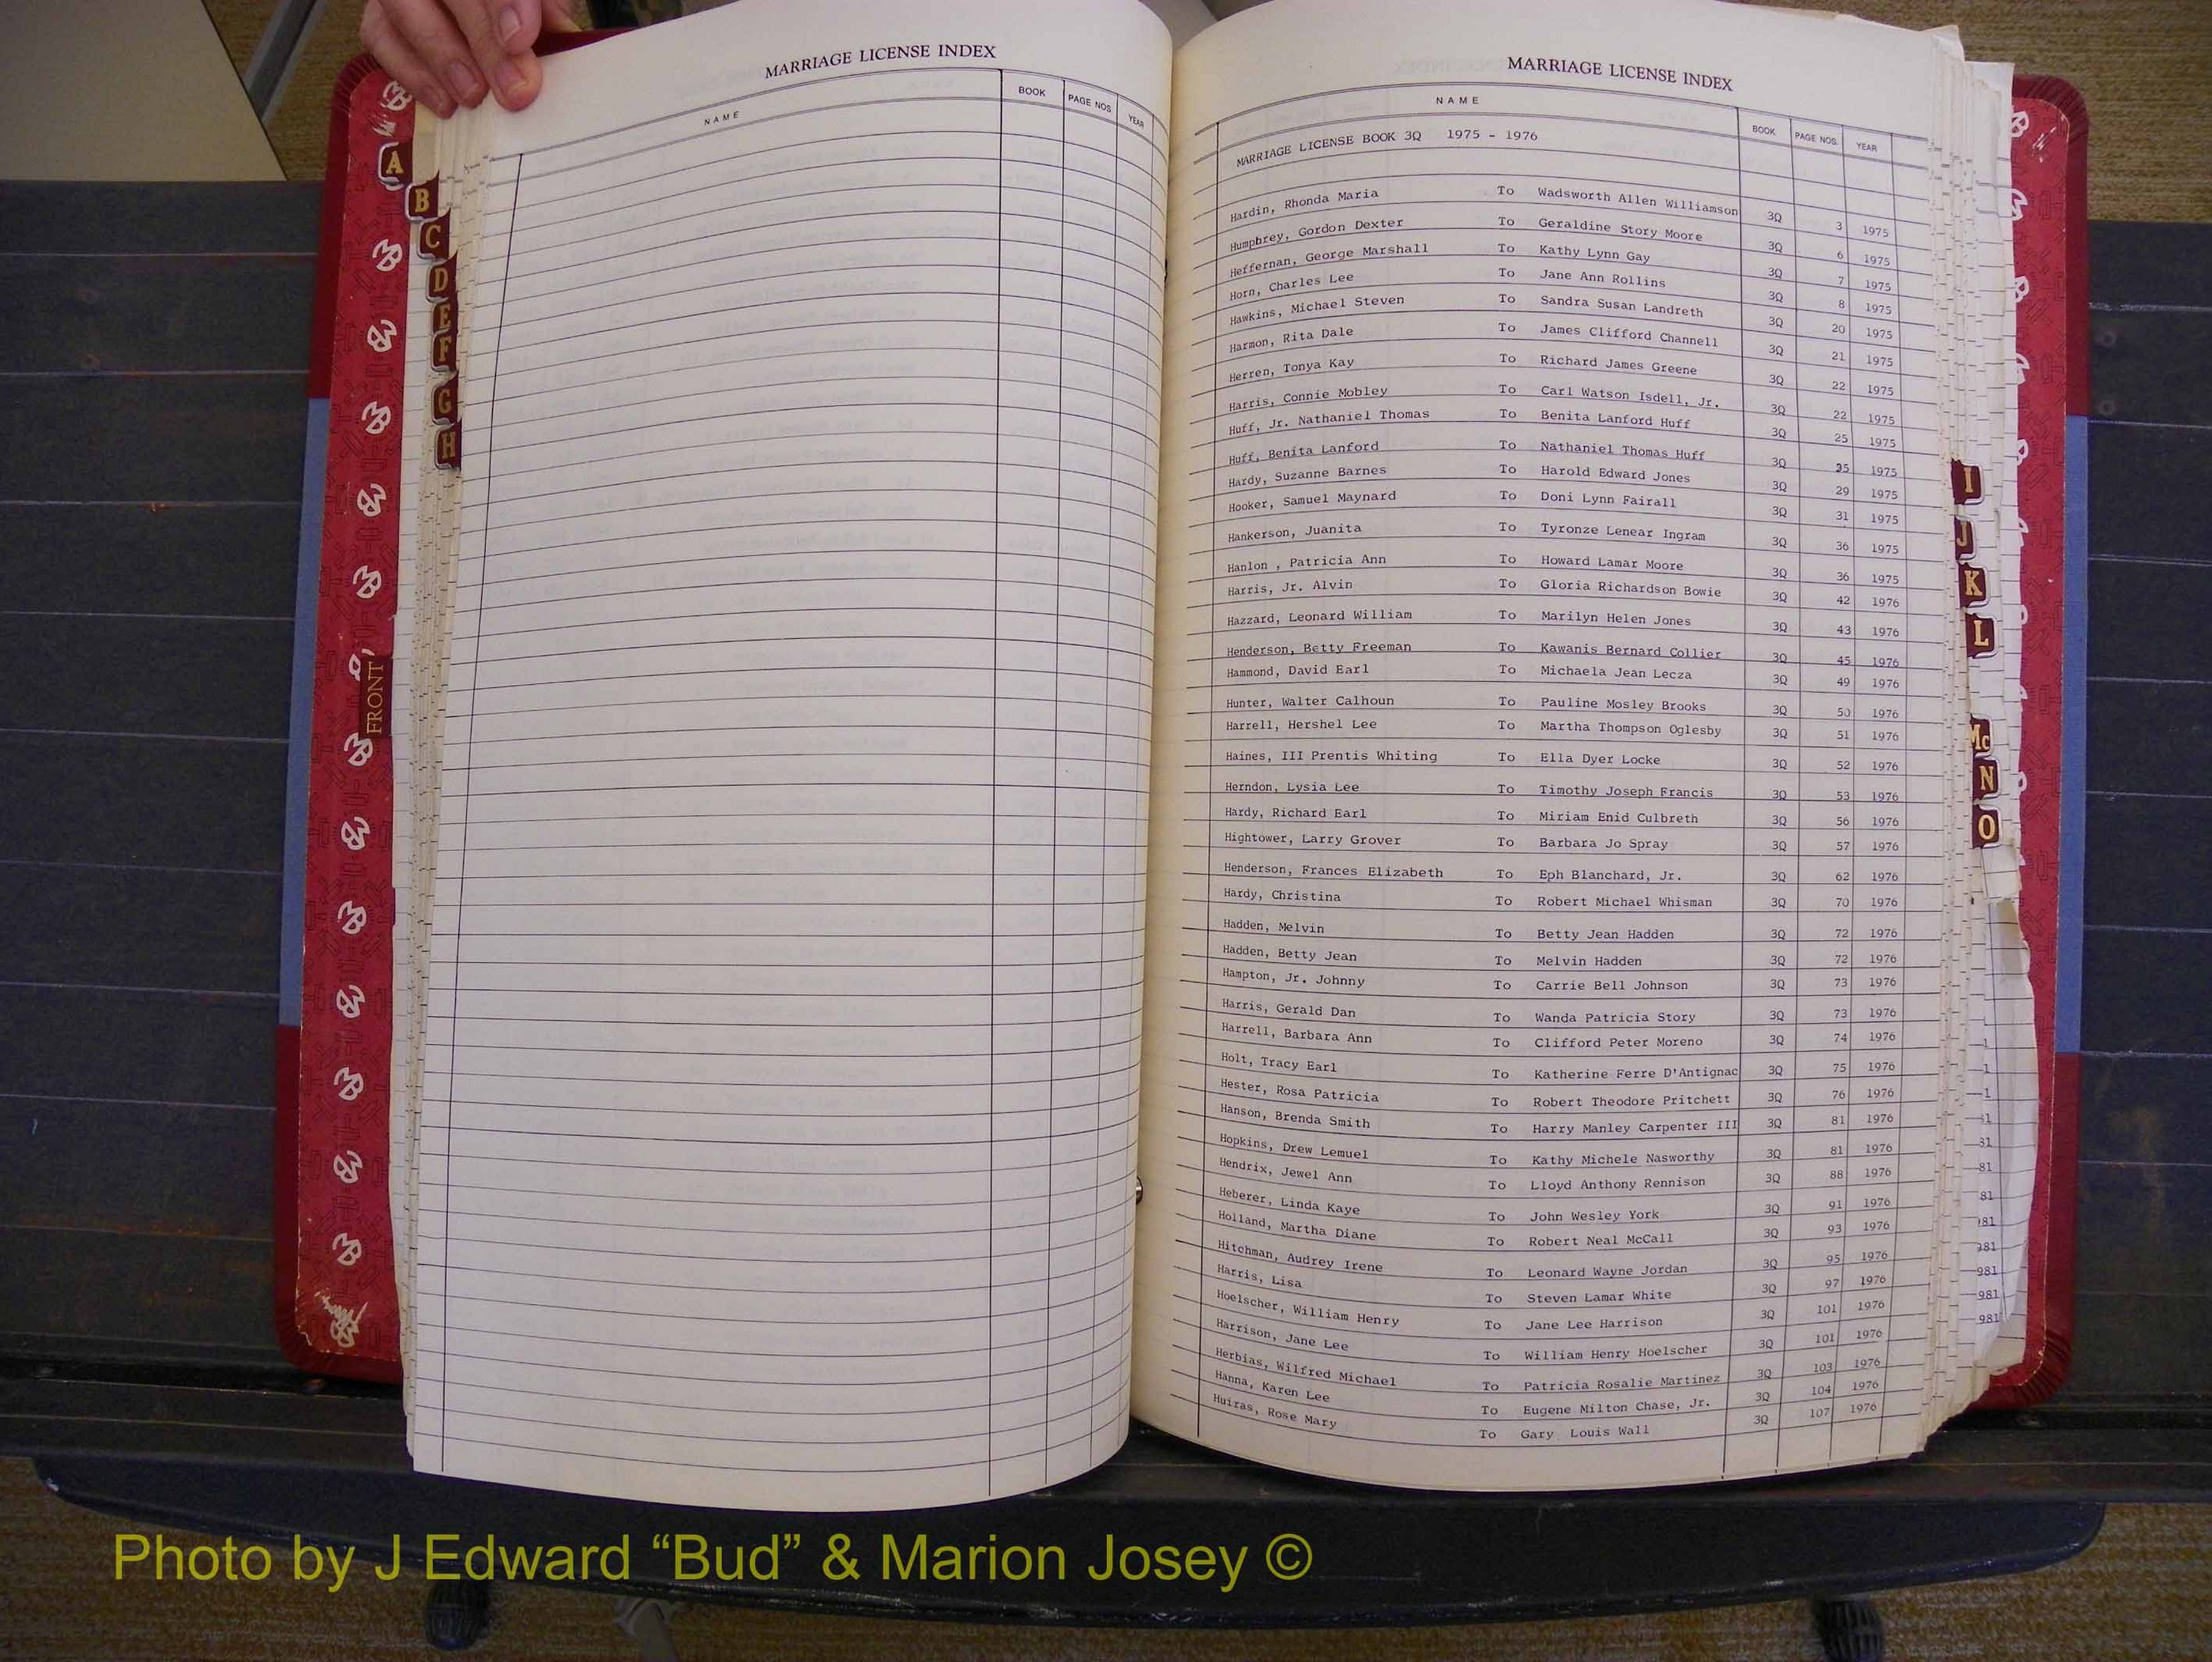 MARRIAGE LICENSE INDEX
NAME BOOK PAGE NOS. YEAR
A
B
C
D
E
F
G
H
FRONT
MARRIAGE LICENSE INDEX
NAME BOOK PAGE NOS. YEAR
MARRIAGE LICENSE BOOK 3Q 1975 - 1976
Hardin, Rhonda Maria To Wadsworth Allen Williamson 3Q 3 1975
Humphrey, Gordon Dexter To Geraldine Story Moore 3Q 6 1975
Heffernan, George Marshall To Kathy Lynn Gay 3Q 7 1975
Horn, Charles Lee To Jane Ann Rollins 3Q 8 1975
Hawkins, Michael Steven To Sandra Susan Landreth 3Q 20 1975
Harmon, Rita Dale To James Clifford Channell 3Q 21 1975
Herren, Tonya Kay To Richard James Greene 3Q 22 1975
Harris, Connie Mobley To Carl Watson Isdell, Jr. 3Q 22 1975
Huff, Jr. Nathaniel Thomas To Benita Lanford Huff 3Q 25 1975
Huff, Benita Lanford To Nathaniel Thomas Huff 3Q 25 1975
Hardy, Suzanne Barnes To Harold Edward Jones 3Q 29 1975
Hooker, Samuel Maynard To Doni Lynn Fairall 3Q 31 1975
Hankerson, Juanita To Tyronze Lenear Ingram 3Q 36 1975
Hanlon , Patricia Ann To Howard Lamar Moore 3Q 36 1975
Harris, Jr. Alvin To Gloria Richardson Bowie 3Q 42 1976
Hazzard, Leonard William To Marilyn Helen Jones 3Q 43 1976
Henderson, Betty Freeman To Kawanis Bernard Collier 3Q 45 1976
Hammond, David Earl To Michaela Jean Lecza 3Q 49 1976
Hunter, Walter Calhoun To Pauline Mosley Brooks 3Q 50 1976
Harrell, Hershel Lee To Martha Thompson Oglesby 3Q 51 1976
Haines, III Prentis Whiting To Ella Dyer Locke 3Q 52 1976
Herndon, Lysia Lee To Timothy Joseph Francis 3Q 53 1976
Hardy, Richard Earl To Miriam Enid Culbreth 3Q 56 1976
Hightower, Larry Grover To Barbara Jo Spray 3Q 57 1976
Henderson, Frances Elizabeth To Eph Blanchard, Jr. 3Q 62 1976
Hardy, Christina To Robert Michael Whisman 3Q 70 1976
Hadden, Melvin To Betty Jean Hadden 3Q 72 1976
Hadden, Betty Jean To Melvin Hadden 3Q 72 1976
Hampton, Jr. Johnny To Carrie Bell Johnson 3Q 73 1976
Harris, Gerald Dan To Wanda Patricia Story 3Q 73 1976
Harrell, Barbara Ann To Clifford Peter Moreno 3Q 74 1976
Holt, Tracy Earl To Katherine Ferre D'Antignac 3Q 75 1976
Hester, Rosa Patricia To Robert Theodore Pritchett 3Q 76 1976
Hanson, Brenda Smith To Harry Manley Carpenter III 3Q 81 1976
Hopkins, Drew Lemuel To Kathy Michele Nasworthy 3Q 81 1976
Hendrix, Jewel Ann To Lloyd Anthony Rennison 3Q 88 1976
Heberer, Linda Kaye To John Wesley York 3Q 91 1976
Holland, Martha Diane To Robert Neal McCall 3Q 93 1976
Hitchman, Audrey Irene To Leonard Wayne Jordan 3Q 95 1976
Harris, Lisa To Steven Lamar White 3Q 97 1976
Hoelscher, William Henry To Jane Lee Harrison 3Q 101 1976
Harrison, Jane Lee To William Henry Hoelscher 3Q 101 1976
Herbias, Wilfred Michael To Patricia Rosalie Martinez 3Q 103 1976
Hanna, Karen Lee To Eugene Milton Chase, Jr. 3Q 104 1976
Huiras, Rose Mary To Gary Louis Wall 3Q 107 1976
I
J
K
L
Mc
N
O
81
81
981
981
981
Photo by J Edward “Bud” & Marion Josey ©